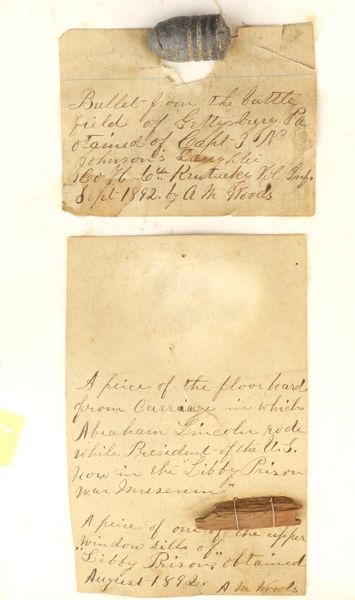 Bullet from the battle
field of Gettysburg Pa
otained of Capt J N
Johnson's Daughter
Co H 6th Kentucky Vol Inf.
Sept 1892. by A M Woods
A peice of the floor board
from Carraage in which
Abraham Lincoln rode
while President of the U.S.
now in the "Libby Prison
war Museum"
A peice of one of the upper
window sills of
"Libby Prison" obtained
August 1892. A M Woods